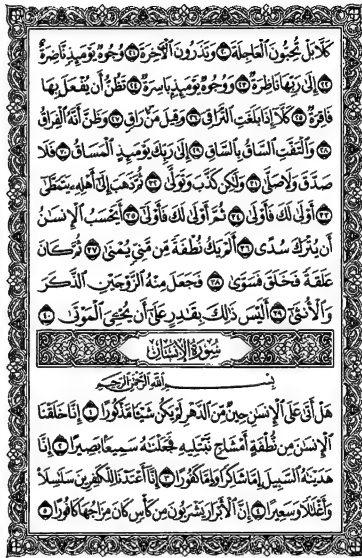 كَلَّا بَلْ تُحِبُّونَ ٱلْعَاجِلَةَ ٢٠ وَتَذَرُونَ ٱلْآخِرَةَ ٢١ وُجُوهٌ يَوْمَئِذٍ نَّاضِرَةٌ
٢٢ إِلَىٰ رَبِّهَا نَاظِرَةٌ ٢٣ وَوُجُوهٌ يَوْمَئِذٍۭ بَاسِرَةٌ ٢٤ تَظُنُّ أَن يُفْعَلَ بِهَا
فَاقِرَةٌ ٢٥ كَلَّآ إِذَا بَلَغَتِ ٱلتَّرَاقِىَ ٢٦ وَقِيلَ مَنْ رَاقٍ ٢٧ وَظَنَّ أَنَّهُ ٱلْفِرَاقُ
٢٨ وَٱلْتَفَّتِ ٱلسَّاقُ بِٱلسَّاقِ ٢٩ إِلَىٰ رَبِّكَ يَوْمَئِذٍ ٱلْمَسَاقُ ٣٠ فَلَا
صَدَّقَ وَلَا صَلَّىٰ ٣١ وَلَٰكِن كَذَّبَ وَتَوَلَّىٰ ٣٢ ثُمَّ ذَهَبَ إِلَىٰٓ أَهْلِهِۦ يَتَمَطَّىٰٓ
٣٣ أَوْلَىٰ لَكَ فَأَوْلَىٰ ٣٤ ثُمَّ أَوْلَىٰ لَكَ فَأَوْلَىٰٓ ٣٥ أَيَحْسَبُ ٱلْإِنسَٰنُ
أَن يُتْرَكَ سُدًى ٣٦ أَلَمْ يَكُ نُطْفَةً مِّن مَّنِىٍّ يُمْنَىٰ ٣٧ ثُمَّ كَانَ
عَلَقَةً فَخَلَقَ فَسَوَّىٰ ٣٨ فَجَعَلَ مِنْهُ ٱلزَّوْجَيْنِ ٱلذَّكَرَ
وَٱلْأُنثَىٰٓ ٣٩ أَلَيْسَ ذَٰلِكَ بِقَٰدِرٍ عَلَىٰٓ أَن يُحْـِۧىَ ٱلْمَوْتَىٰ ٤٠
سُورَةُ الإِنْسَان
بِسْمِ ٱللَّهِ ٱلرَّحْمَٰنِ ٱلرَّحِيمِ
هَلْ أَتَىٰ عَلَى ٱلْإِنسَٰنِ حِينٌ مِّنَ ٱلدَّهْرِ لَمْ يَكُن شَيْـًٔا مَّذْكُورًا ١ إِنَّا خَلَقْنَا
ٱلْإِنسَٰنَ مِن نُّطْفَةٍ أَمْشَاجٍ نَّبْتَلِيهِ فَجَعَلْنَٰهُ سَمِيعًۢا بَصِيرًا ٢ إِنَّا
هَدَيْنَٰهُ ٱلسَّبِيلَ إِمَّا شَاكِرًا وَإِمَّا كَفُورًا ٣ إِنَّآ أَعْتَدْنَا لِلْكَٰفِرِينَ سَلَٰسِلَا۟
وَأَغْلَٰلًا وَسَعِيرًا ٤ إِنَّ ٱلْأَبْرَارَ يَشْرَبُونَ مِن كَأْسٍ كَانَ مِزَاجُهَا كَافُورًا ٥